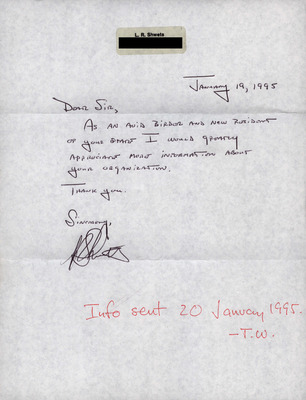 L. R. Sheets
January 19, 1995
Dear Sir,
As an avid birder and new resident
of your state I would greatly
appreciate more information about
your organization.
Thank you.
Sincerely,
Info sent 20 January 1995.
-T.W.